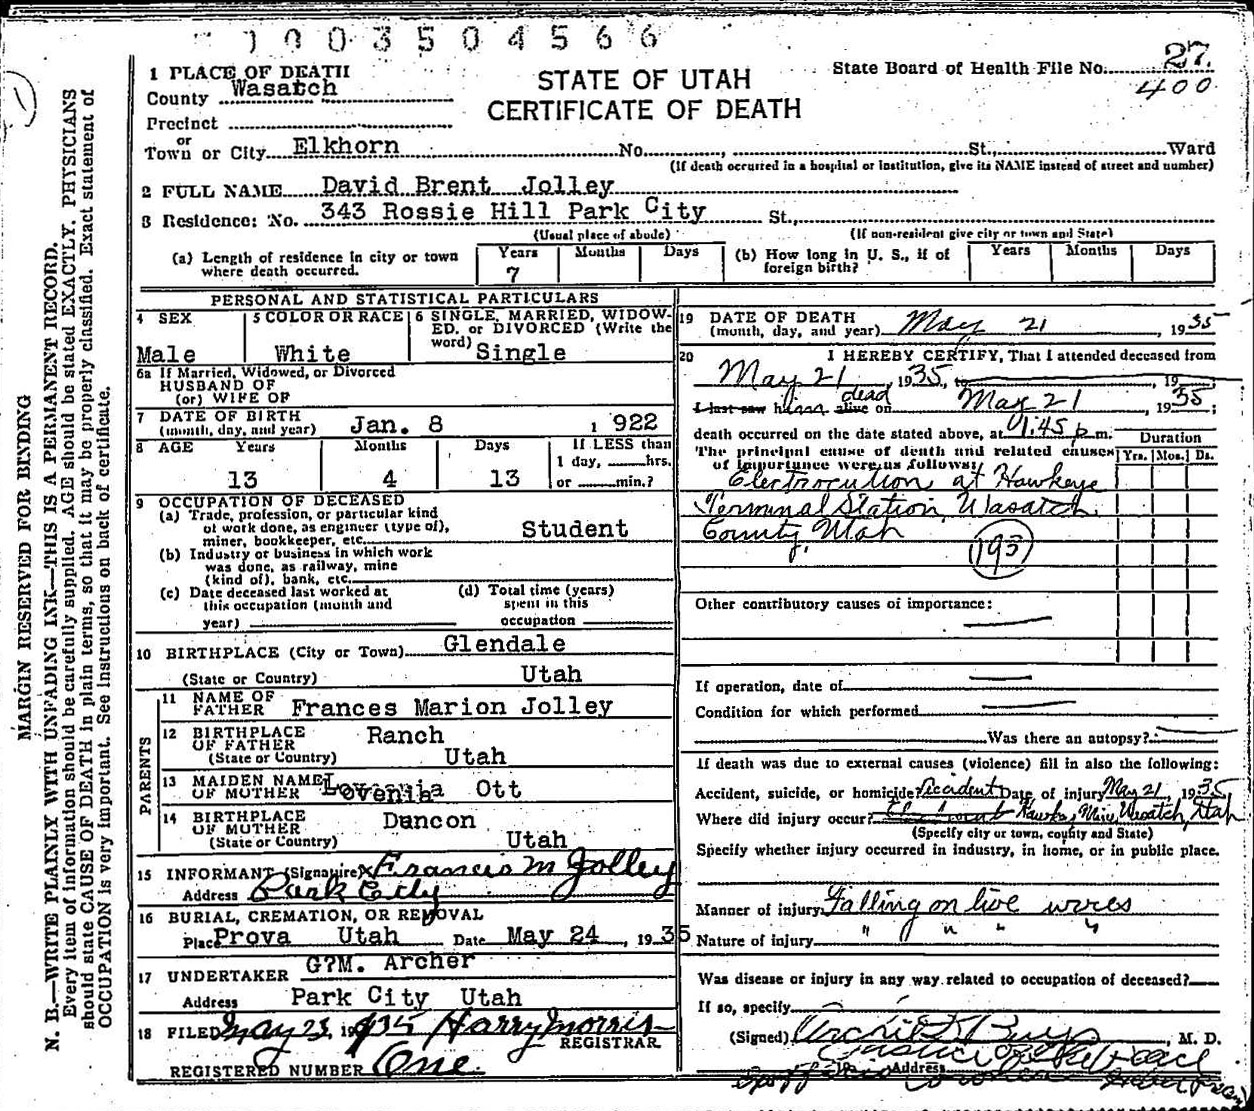 1003504566
27.
400
1 PLACE OF DEATH
County Wasatch
Precinct
or
Town or City Elkhorn No. St., Ward
STATE OF UTAH
CERTIFICATE OF DEATH
State Board of Health File No.
(If death occurred in a hospital or institution, give its NAME instead of street and number)
2 FULL NAME David Brent Jolley
3 Residence: No. 343 Rossie Hill Park City St.,
(Usual place of abode) (If non-resident give city or town and State)
(a) Length of residence in city or town where death occurred. Years 7 Months Days
(b) How long in U. S., if of foreign birth? Years Months Days
PERSONAL AND STATISTICAL PARTICULARS
4 SEX
Male
5 COLOR OR RACE
White
6 SINGLE, MARRIED, WIDOW-
ED. or DIVORCED (Write the
word) Single
6a If Married, Widowed, or Divorced
HUSBAND OF
(or) WIFE OF
7 DATE OF BIRTH
(month, day, and year) Jan. 8 1 922
8 AGE Years Months Days If LESS than
1 day, hrs.
13 4 13 or min.?
9 OCCUPATION OF DECEASED
(a) Trade, profession, or particular kind
of work done, as engineer (type of),
miner, bookkeeper, etc. Student
(b) Industry or business in which work
was done, as railway, mine
(kind of), bank, etc.
(c) Date deceased last worked at
this occupation (month and
year)
(d) Total time (years)
spent in this
occupation
10 BIRTHPLACE (City or Town) Glendale
(State or Country) Utah
PARENTS
11 NAME OF
FATHER Frances Marion Jolley
12 BIRTHPLACE Ranch
OF FATHER
(State or Country) Utah
13 MAIDEN NAME
OF MOTHER Lovenia Ott
14 BIRTHPLACE Duncon
OF MOTHER
(State or Country) Utah
15 INFORMANT (Signature) X Francis M Jolley
Address Park City
16 BURIAL, CREMATION, OR REMOVAL
Place Prova Utah Date May 24, 1935
17 UNDERTAKER G?M. Archer
Address Park City Utah
18 FILED May 23, 1935 Harry Morris
REGISTRAR
REGISTERED NUMBER One.
19 DATE OF DEATH
(month, day, and year) May 21, 1935
20 I HEREBY CERTIFY, That I attended deceased from
May 21, 1935, to , 19
I last saw him alive on dead May 21, 1935;
death occurred on the date stated above, at 1:45 p.m.
Duration
Yrs. Mos. Ds.
The principal cause of death and related causes
of importance were as follows:
Electrocution at Hawkeye
Terminal Station, Wasatch
County, Utah
193
Other contributory causes of importance:
If operation, date of
Condition for which performed
Was there an autopsy?
If death was due to external causes (violence) fill in also the following:
Accident, suicide, or homicide Accident Date of injury May 21, 1935
Where did injury occur? Hawkeye Mine, Wasatch, Utah
(Specify city or town, county and State)
Specify whether injury occurred in industry, in home, or in public place.
Manner of injury Falling on live wires
Nature of injury " " " "
Was disease or injury in any way related to occupation of deceased?
If so, specify
(Signed) , M. D.
Justice of the Peace
Address
MARGIN RESERVED FOR BINDING
N. B.—WRITE PLAINLY WITH UNFADING INK—THIS IS A PERMANENT RECORD.
Every item of information should be carefully supplied. AGE should be stated EXACTLY. PHYSICIANS
should state CAUSE OF DEATH in plain terms, so that it may be properly classified. Exact statement of
OCCUPATION is very important. See instructions on back of certificate.